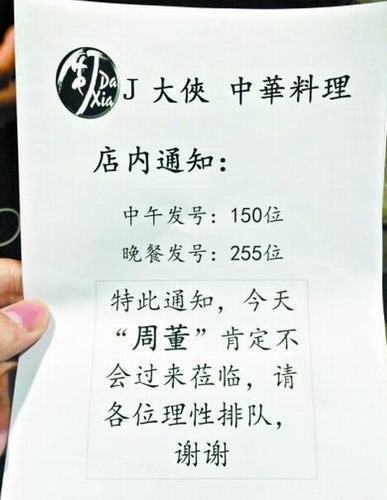 Da
Xia
J 大俠 中華料理
店内通知：
中午发号：150位
晚餐发号：255位
特此通知，今天
“周董”肯定不
会过来莅临，请
各位理性排队，
谢谢